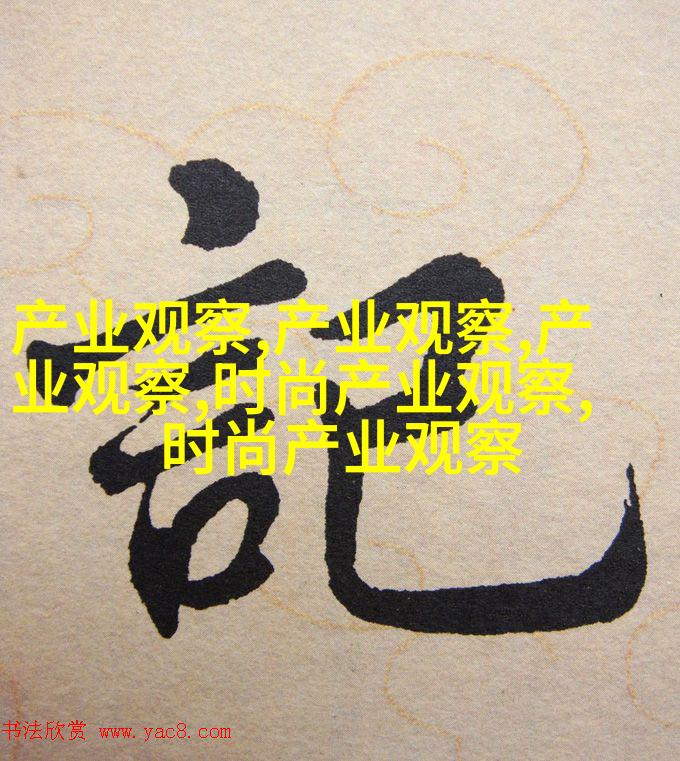 記
产业观察,产业观察,产
业观察,时尚产业观察,
时尚产业观察
书法欣赏 www.yac8.com